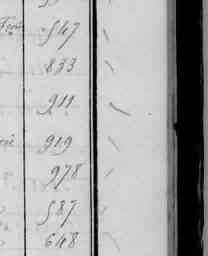 547
833
911
919
978
587
648